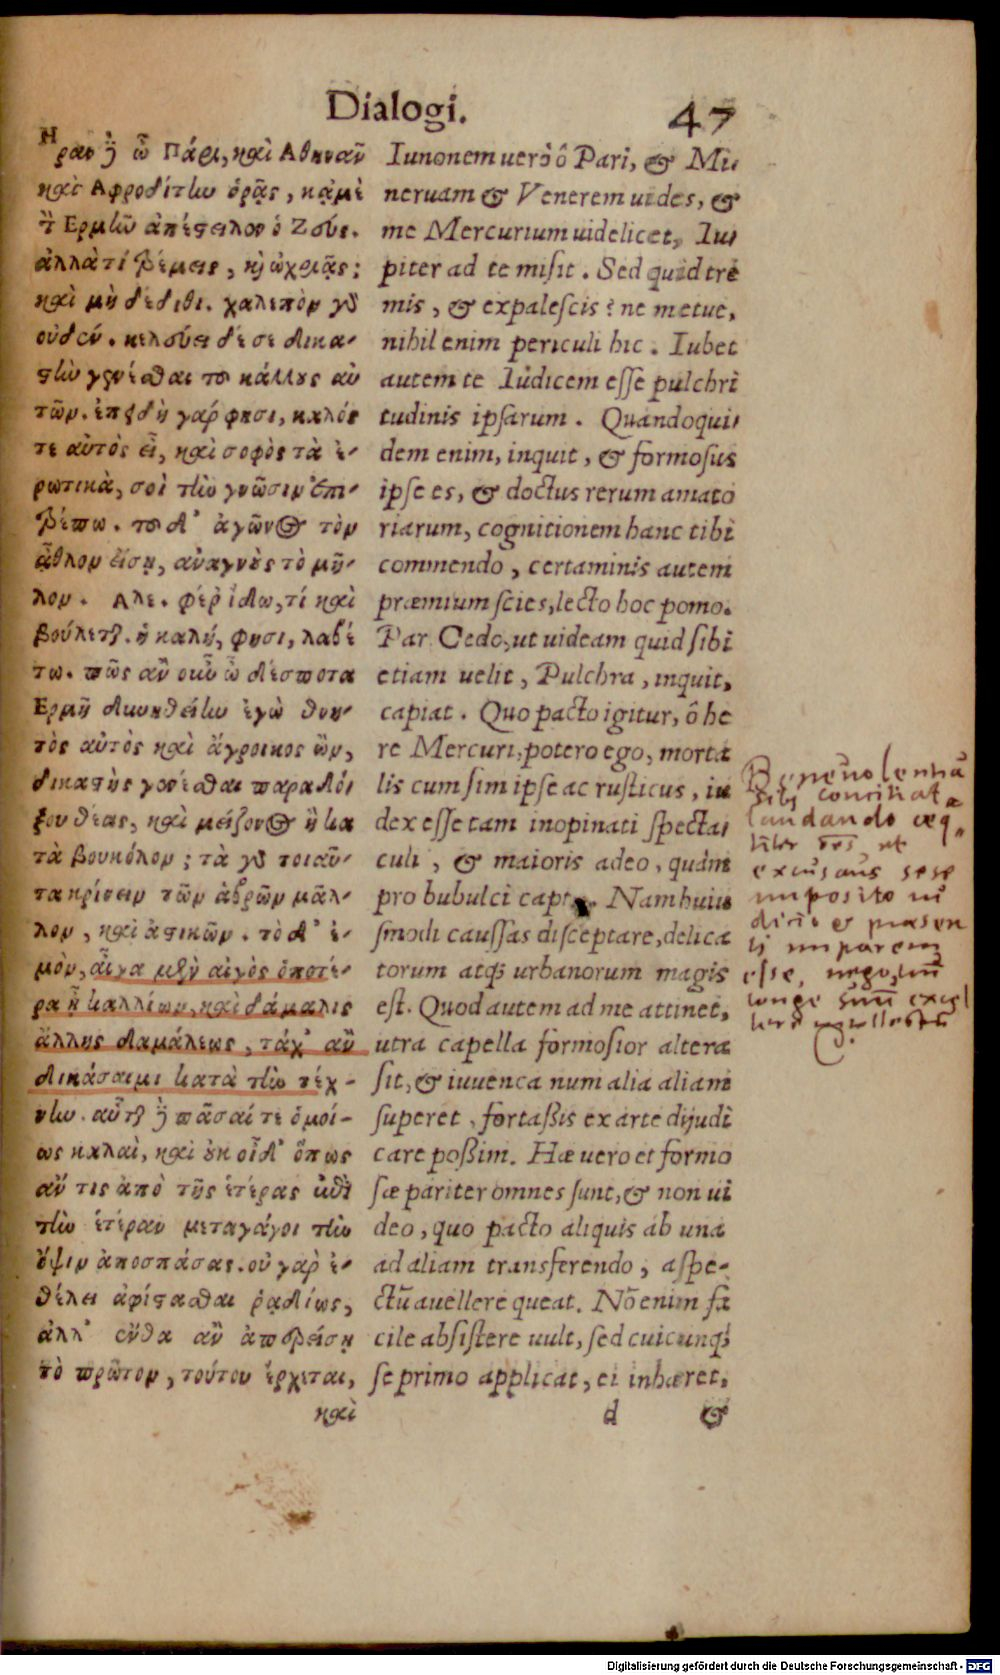 Dialogi. 47
Ηραν δὲ ὦ Πάρι, καὶ Αθηναῦ
καὶ Αφροδίτην ὁρᾷς, κᾀμὲ
τὸ Ερμῶ ἀπέστειλεν ὁ Ζεύς.
ἀλλὰ τί τρέμεις, κὶ ὠχριᾷς;
καὶ μὴ δέδιθι. χαλεπὸν γὸ
οὐδέν. κελεύει δέ σε δικα-
στὼ γενέσθαι τοῦ κάλλους αὐ
τῶν. ἐπειδὴ γάρ φησι, καλός
τε αὐτὸς εἶ, καὶ σοφὸς τὰ ἐ-
ρωτικὰ, σοὶ τὼ γνῶσιν ἐπι-
τρέπω. τοῦ δ' ἀγῶνος τὸν
ἆθλον εἴσῃ, ἀναγνοὺς τὸ μῆ-
λον. Αλε. φέρ ἴδω, τί καὶ
βούλεται. ἡ καλή, φησι, λαβέ
τω. πῶς ἂν οὖν ὦ δέσποτα
Ερμῆ δυνηθείην ἐγὼ θνη-
τὸς αὐτὸς καὶ ἄγροικος ὢν,
δικαστὴς γενέσθαι παραδό
ξου θέας, καὶ μείζονος ἢ κα
τὰ βουκόλον; τὰ γὸ τοιαῦ-
τα κρίνειν τῶν ἁβρῶν μᾶλ-
λον, καὶ ἀστικῶν. τὸ δ' ἐ-
μὸν, αἶγα μὲν αἰγὸς ὁποτέ-
ρα ἢ καλλίων, καὶ δάμαλις
ἄλλης δαμάλεως, τάχ' ἂν
δικάσαιμι κατὰ τὼ τέχ-
νω. αὗται δὲ πᾶσαί τε ὁμοί-
ως καλαὶ, καὶ οὐκ οἶδ' ὅπως
ἄν τις ἀπὸ τῆς ἑτέρας ἐπὶ
τὼ ἑτέραν μεταγάγοι τὼ
ὄψιν ἀποσπάσας. οὐ γὰρ ἐ-
θέλει ἀφίστασθαι ῥᾳδίως,
ἀλλ' ἔνθα ἂν ἀπερείσῃ
τὸ πρῶτον, τούτου ἔρχεται,
καὶ
Iunonem uerò ô Pari, & Mi
neruam & Venerem uides, &
me Mercurium uidelicet, Iu
piter ad te misit. Sed quid tre
mis, & expalescis? ne metue,
nihil enim periculi hic. Iubet
autem te Iudicem esse pulchri
tudinis ipsarum. Quandoqui
dem enim, inquit, & formosus
ipse es, & doctus rerum amato
riarum, cognitionem hanc tibi
commendo, certaminis autem
præmium scies, lecto hoc pomo.
Par. Cedo, ut uideam quid sibi
etiam uelit, Pulchra, inquit,
capiat. Quo pacto igitur, ô he
re Mercuri, potero ego, morta
lis cum sim ipse ac rusticus, iu
dex esse tam inopinati specta
culi, & maioris adeo, quàm
pro bubulci captu. Nam huiu
smodi caussas disceptare, delica
torum atq; urbanorum magis
est. Quod autem ad me attinet,
utra capella formosior altera
sit, & iuuenca num alia aliam
superet, fortaßis ex arte dijudi
care poßim. Hæ uero et formo
sæ pariter omnes sunt, & non ui
deo, quo pacto aliquis ab una
ad aliam transferendo, aspe-
ctũ auellere queat. Nõ enim fa
cile absistere uult, sed cuicunq;
se primo applicat, ei inhæret,
d &
Beneuolentia
sibi conciliat
laudando æq
excusans sese
imposito iu
dicio et
imparem
esse,
longe
Digitalisierung gefördert durch die Deutsche Forschungsgemeinschaft - DFG